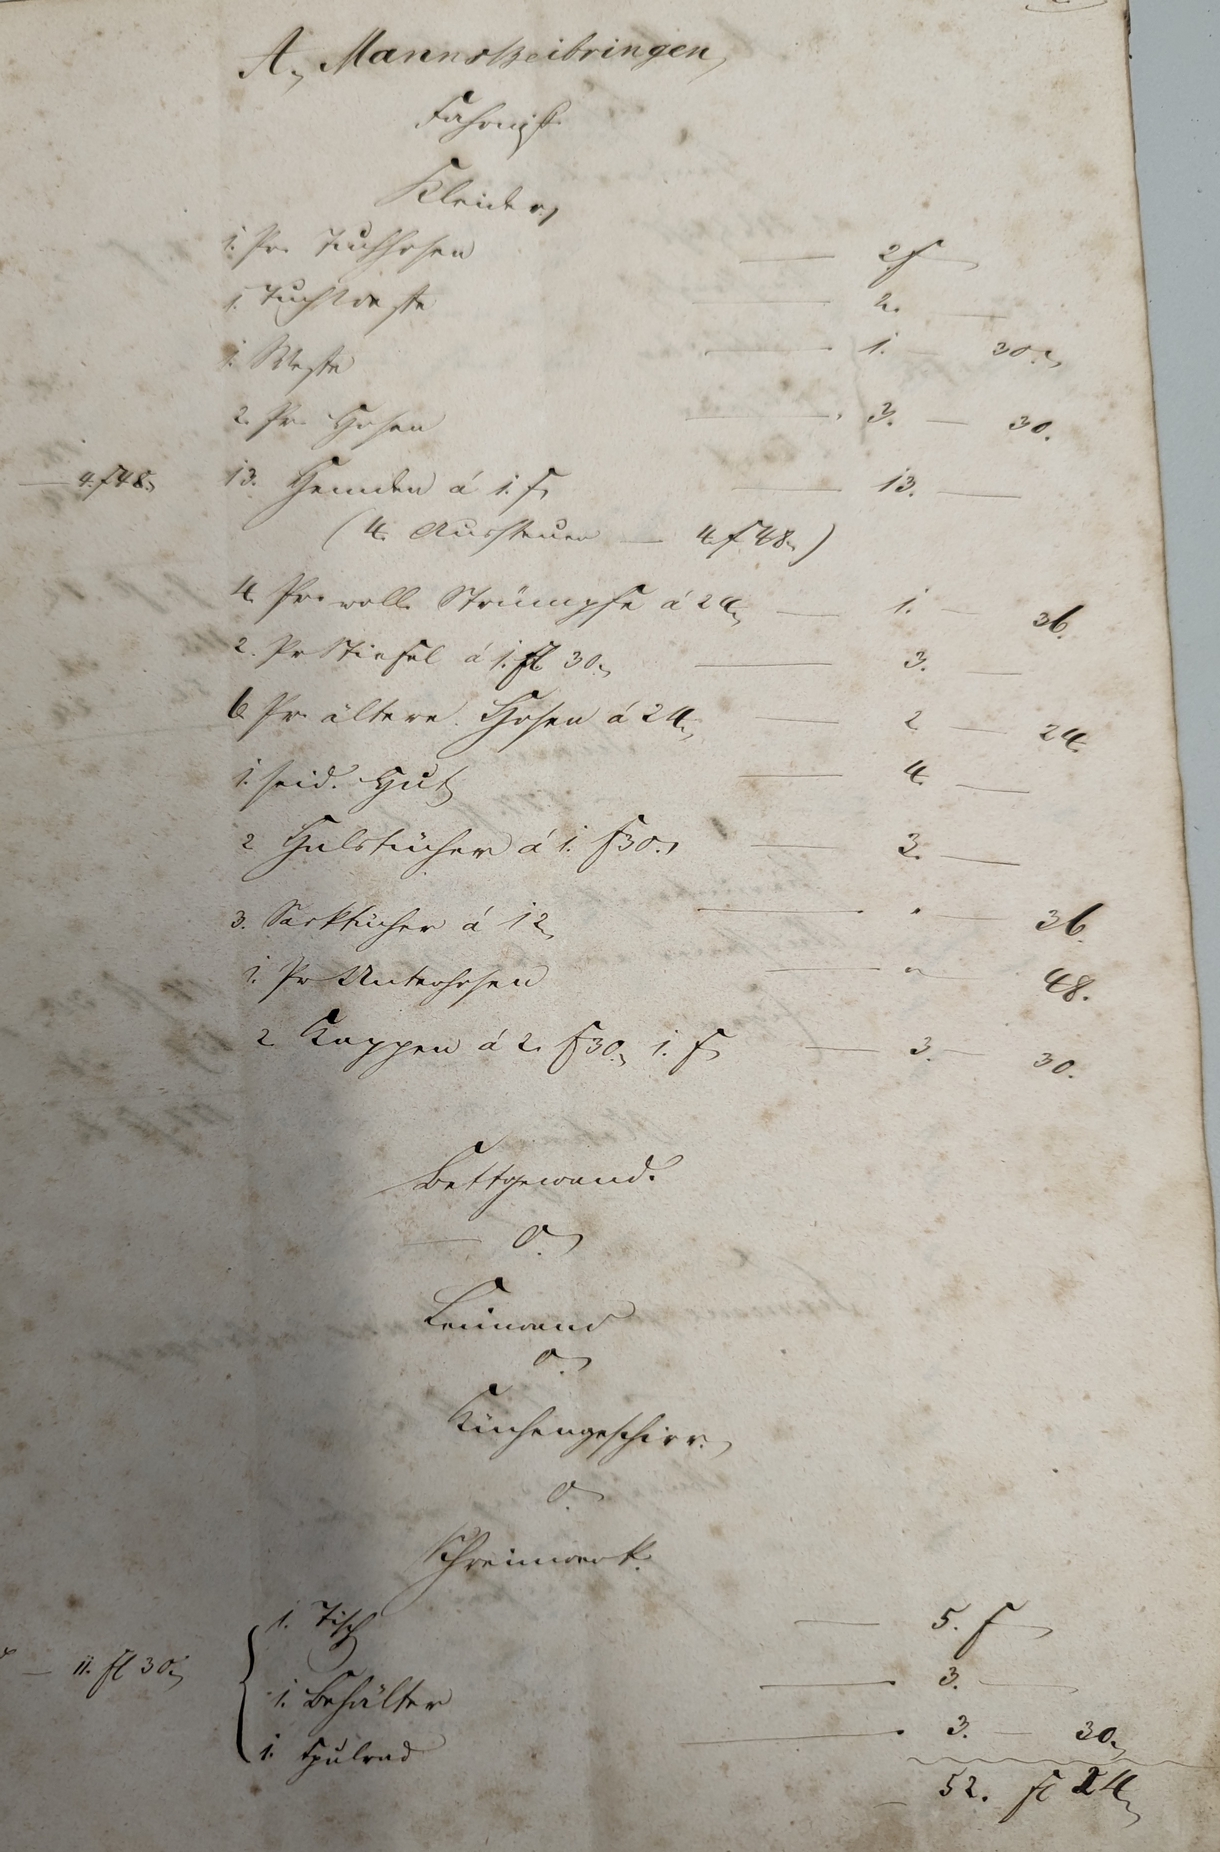 A., Mannsbeibringen,
Fahrniß.
Kleider,
1. Pr. Tuchhosen — 2 f —
1. Tuchweste — 2. —
1. Weste — 1. — 30.
2. Pr. Hosen — 3. — 30.
— 4. f 48. 13. Hemden á 1. f — 13. —
(4. Aussteuer — 4. f 48.)
4. Pr. woll. Strümpfe á 24. — 1. — 36.
2. Pr Stiefel á 1. fl 30. — 3. —
6. Pr. ältere Hosen á 24. — 2 — 24.
1. seid. Hut — 4. —
2 Halstücher á 1. f 30. — 3. —
3. Sacktücher á 12. — " 36.
1. Pr Unterhosen — " 48.
2 Kappen á 2. f 30. 1. f — 3. — 30.
Bettgewand.
— 0.
Leinwand
0.
Küchengeschirr.
0.
Schreinwerk.
1. Tisch — 5. f —
— 11. fl 30. 1. Behälter — 3. —
1. Spulrad — 3. — 30.
52. fl 24.